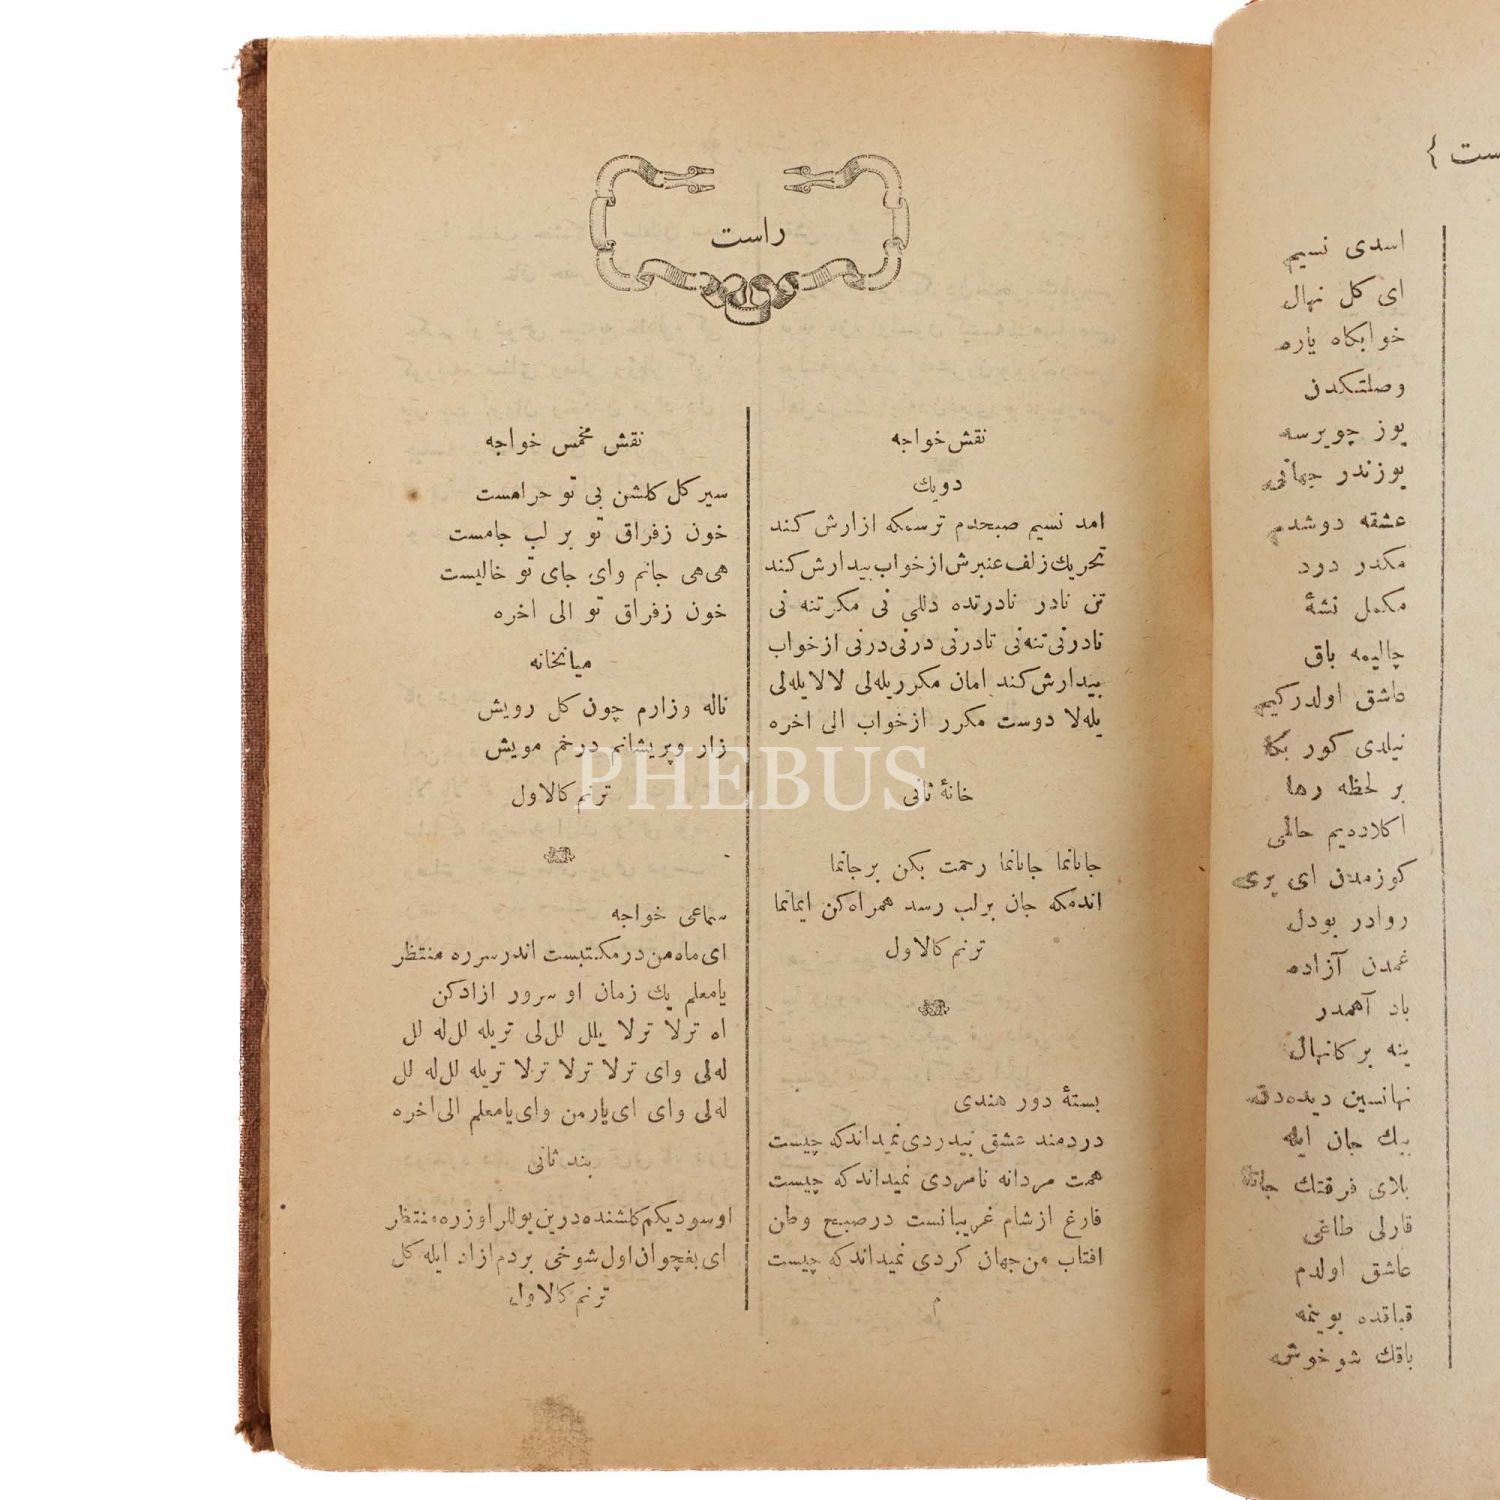 راست
نقش خواجه
دویك
امد نسیم صبحدم ترسمکه ازارش کند
تحریك زلف عنبرش از خواب بیدارش کند
تن نادر نادرتده دللی نی مکر تنه نی
نادرنی تنه نی تادرنی درنی درنی از خواب
بیدارش کند امان مکرر یله لی لالا یله لی
یله لا دوست مکرر ازخواب الی اخره
خانهٔ ثانی
جانانما جانانما رحمت بکن برجانما
اندمکه جان برلب رسد همراه کن ایمانما
ترنم کالاول
بستهٔ دور هندی
دردمند عشق نبدردی نمیداندکه چیست
همت مردانه نامردی نمیداندکه چیست
فارغ ازشام غریبانست درصبح وطن
افتاب من جهان کردی نمیداندکه چیست
م
نقش مخمس خواجه
سیر کل کلشن بی تو حرامست
خون زفراق تو بر لب جامست
هی هی جانم وای جای تو خالیست
خون زفراق تو الی اخره
میانخانه
ناله وزارم چون کل رویش
زار وپریشانم درخم مویش
ترنم کالاول
سماعی خواجه
ای ماه من درمکتبست اندر سرره منتظر
یامعلم یك زمان او سرور ازادکن
اه ترلا ترلا یلل لل لی تریله لل له لل
له لی وای ترلا ترلا ترلا تریله لل له لل
له لی وای ای یارمن وای یامعلم الی اخره
بند ثانی
اوسودیکم کلشنده درین یوللر اوزره منتظر
ای بغچوان اول شوخی بردم ازاد ایله کل
ترنم کالاول
ست }
اسدی نسیم
ای کل نهال
خوابکاه یاره
وصلتکدن
یوز چویرسه
یوزندر جهانی
عشقه دوشدم
مکدر درد
مکمل نشهٔ
چالیمه باق
عاشق اولدرکیم
نیلدی کور بکا
بر لحظه رها
اکلادیم حالمی
کوزمدن ای پری
روادر بودل
غمدن آزاده
باد آهمدر
ینه بر کلنهال
نهانسین دیده دن
بیك جان ایله
بلای فرقتك
قارلی طاغی
عاشق اولدم
قباقده بوینمه
باقك شوخوش
PHEBUS